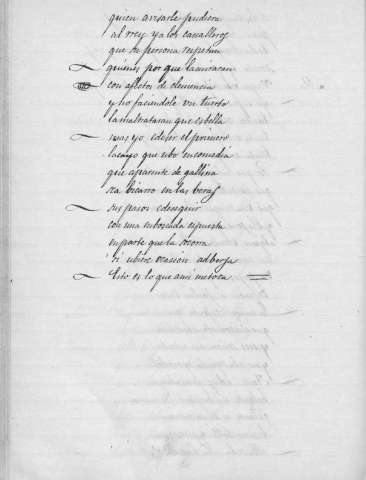 quien avisarle pudiera
al rey y a los cavalleros
que su persona respetan
quienes por que la miraran
con afectos de clemencia
y no faciendole un tuerto
la maltrataran que es bella
mas yo de ser el primero
lacayo que ubo en comedia
que aparente de gallina
sea bizarro en las beras
sus pasos e de seguir
con una enboscada espuesta
en parte que la socorra
si ubiere ocasión adbersa
Esto es lo que a mi me toca